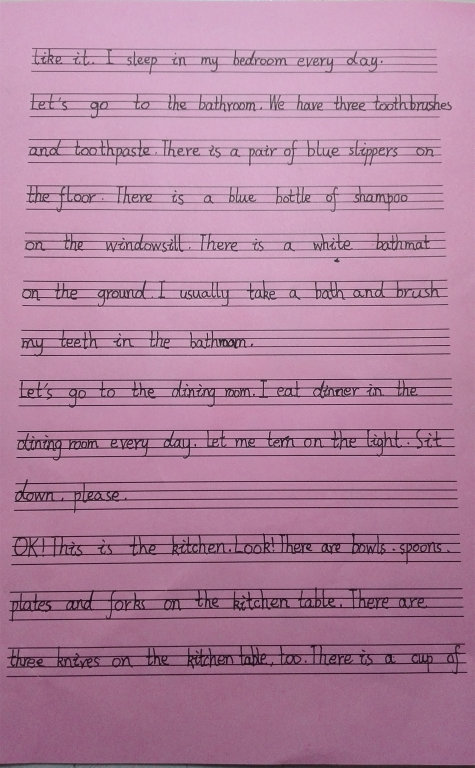 like it. I sleep in my bedroom every day.
Let's go to the bathroom. We have three toothbrushes
and toothpaste. There is a pair of blue slippers on
the floor. There is a blue bottle of shampoo
on the windowsill. There is a white bathmat
on the ground. I usually take a bath and brush
my teeth in the bathroom.
Let's go to the dining room. I eat dinner in the
dining room every day. Let me tern on the light. Sit
down, please.
OK! This is the kitchen. Look! There are bowls. spoons.
plates and forks on the kitchen table. There are
three knives on the kitchen table, too. There is a cup of